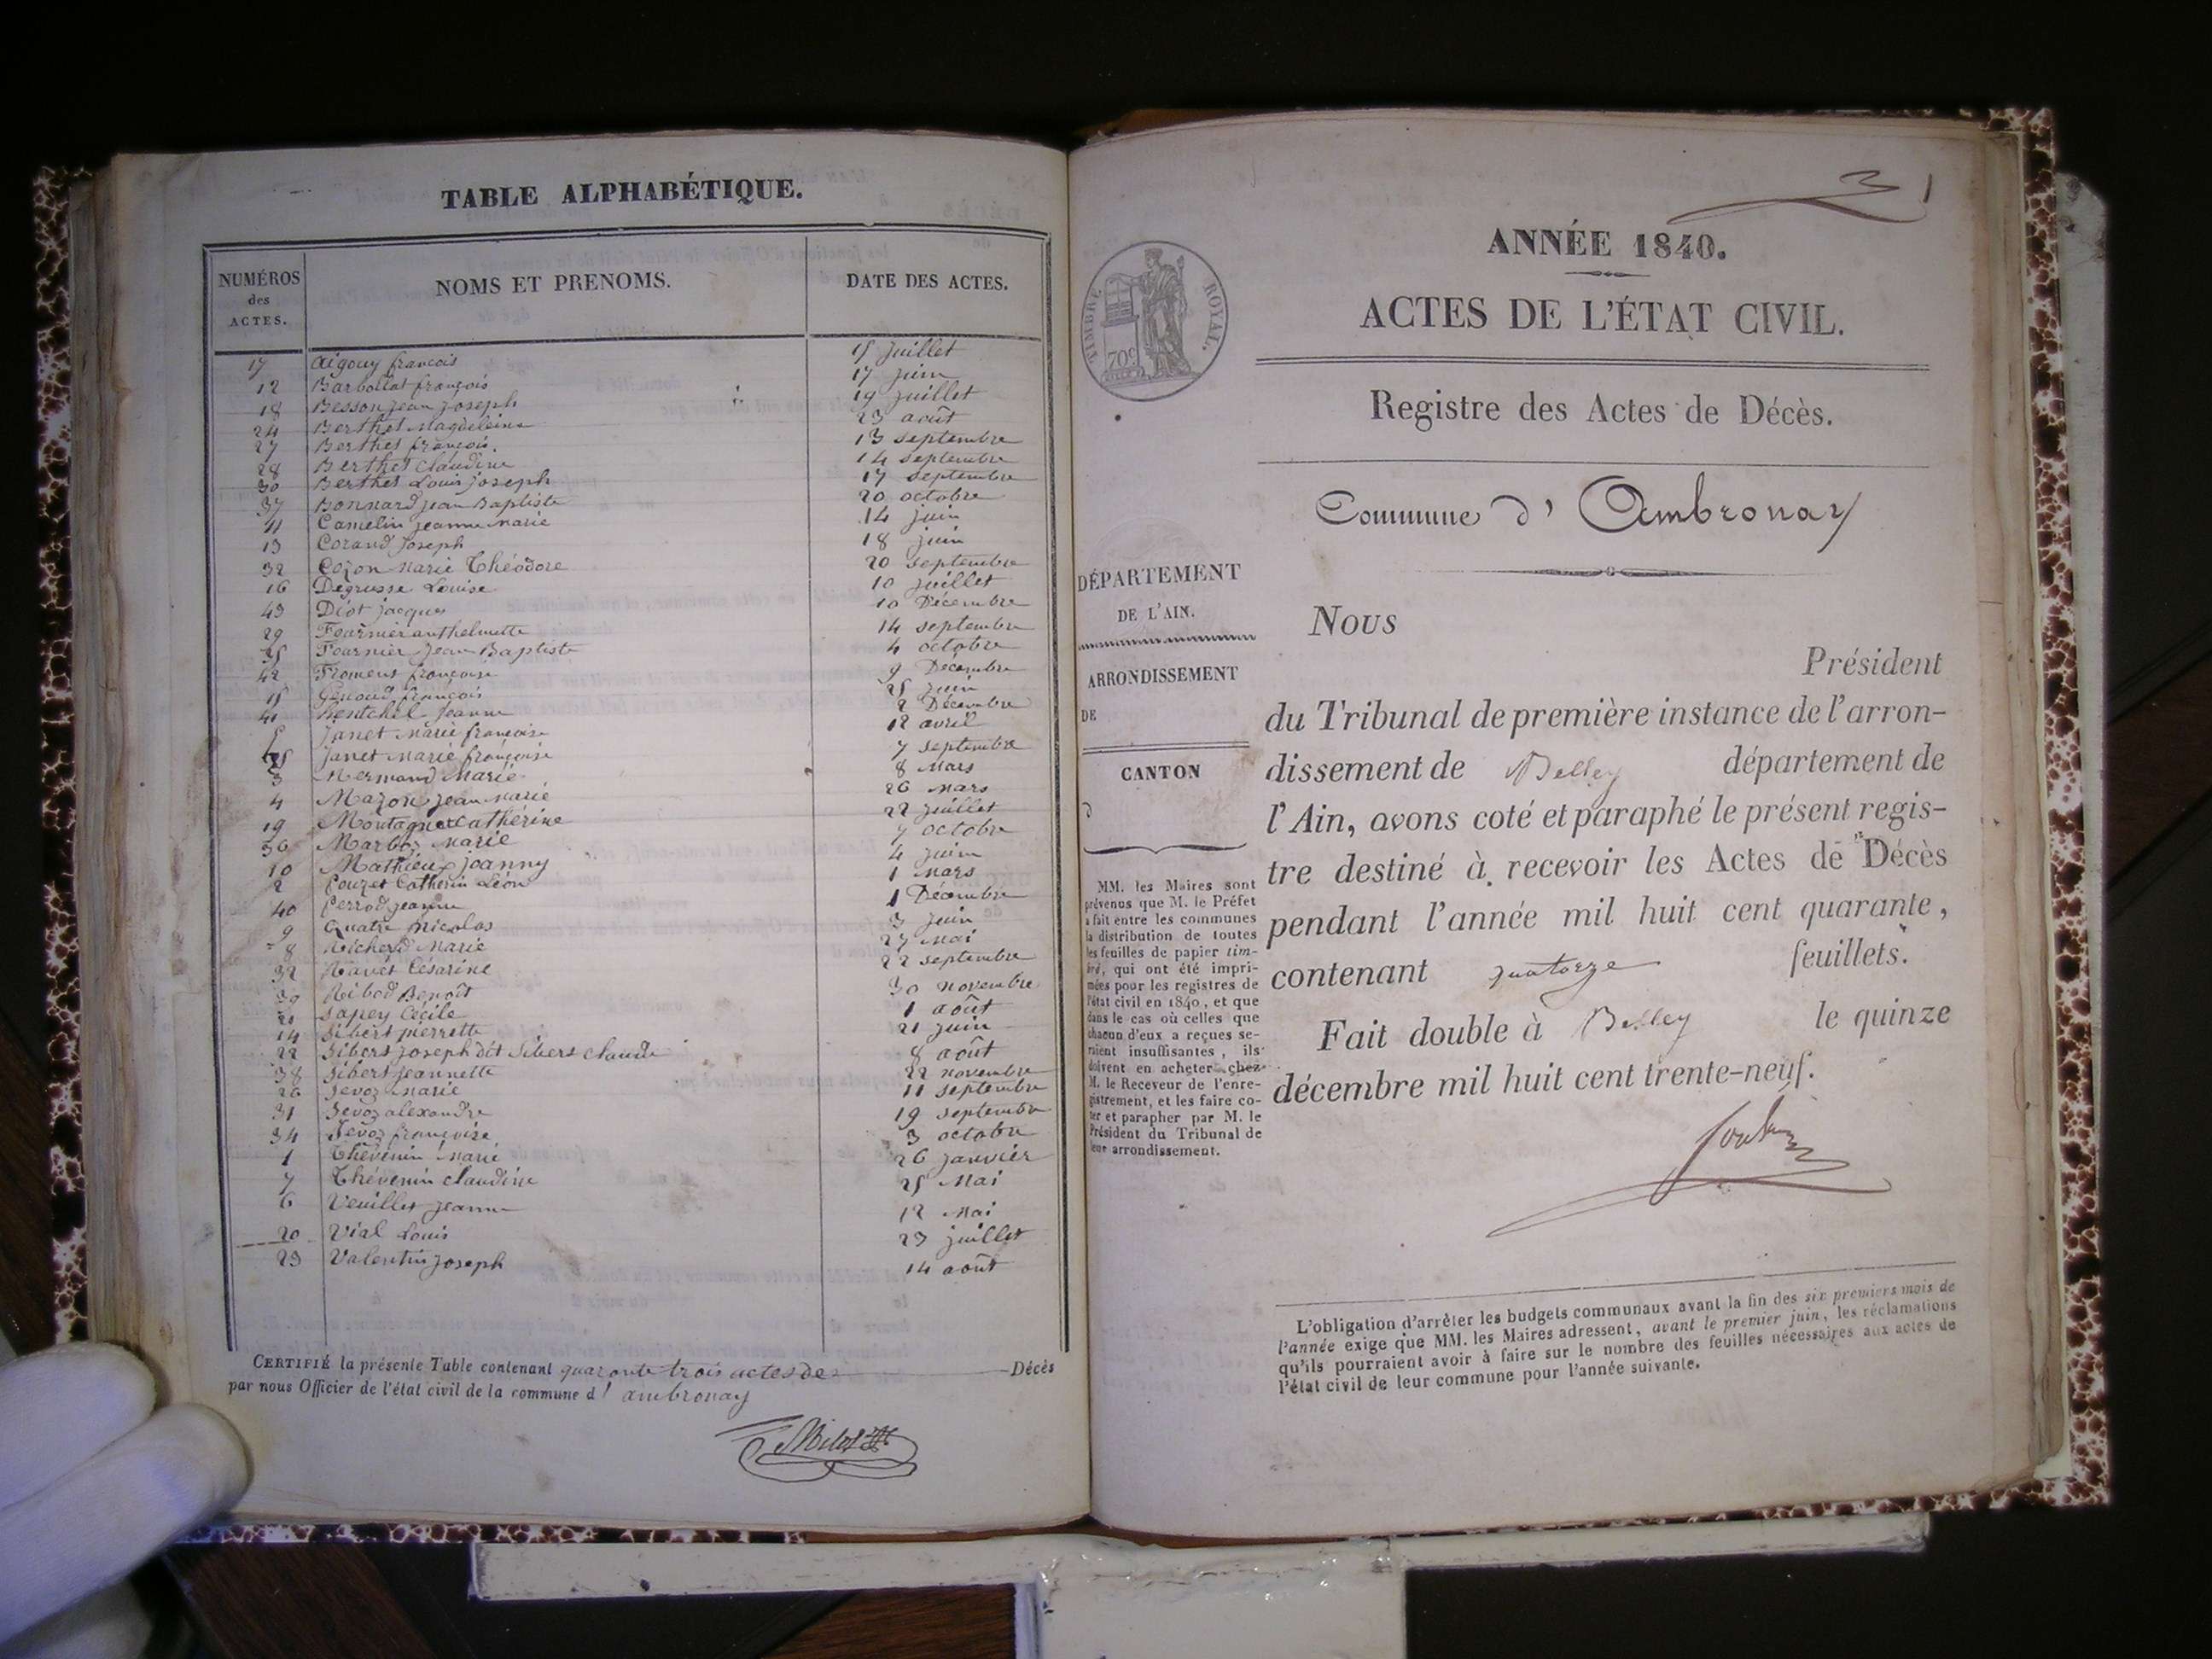 TABLE ALPHABÉTIQUE.
NUMÉROS des ACTES. NOMS ET PRENOMS. DATE DES ACTES.
17 Aigouy francois 15 juillet
12 Barbollat françois 17 juin
18 Besson jean joseph 19 juillet
24 Berthet Magdeleine 23 août
27 Berthet françois. 13 septembre
28 Berthet Claudine 14 septembre
30 Berthet Louis joseph 17 septembre
37 Bonnard jean Baptiste 20 octobre
11 Camelin jeanne Marie 14 juin
13 Corand Joseph 18 juin
32 Cozon Marie Théodore 20 septembre
16 Degrusse Louise 10 juillet
43 Diot jacques 10 Décembre
29 Fournier anthelmette 14 septembre
35 Fournier Jean Baptiste 4 octobre
42 Froment françoise 9 Décembre
15 Genoud françois 25 juin
41 Hentchel Jeanne 2 Décembre
5 Janet Marie françoise 12 avril
25 Janet Marie françoise 7 septembre
3 Mermand Marie 8 Mars
4 Mazon jean Marie 26 Mars
19 Montagnet Cathérine 22 juillet
36 Marie 7 octobre
10 Mathieu joanny 4 juin
2 Pouzet Catherin Léon 1 Mars
40 Perrod jeanne 1 Décembre
9 Quatre Nicolas 3 juin
8 Richerd Marie 27 Mai
32 Ravet Césarine 22 septembre
39 Ribod Benoît 30 novembre
21 Sapey Cécile 1 août
14 Sibert pierrette 21 juin
22 Sibert joseph dit Sibert Claude 8 août
38 Sibert jeannette 22 novembre
26 Sevoz Marie 11 septembre
31 Sevoz alexandre 19 septembre
34 Sevoz françoise 3 octobre
1 Thévenin Marie 26 janvier
7 Thévenin Claudine 25 Mai
6 Veuillet jeanne 12 Mai
20 Vial Louis 23 juillet
23 Valentin joseph 14 août
CERTIFIÉ la présente Table contenant quaronte trois actes de Décès
par nous Officier de l'état civil de la commune d' ambronay
31
ANNÉE 1840.
ACTES DE L'ÉTAT CIVIL.
TIMBRE ROYAL.
70c
Registre des Actes de Décès.
Commune d' Ambronay
DÉPARTEMENT
DE L'AIN.
ARRONDISSEMENT
DE
CANTON
d
MM. les Maires sont
prévenus que M. le Préfet
a fait entre les communes
la distribution de toutes
les feuilles de papier tim-
bré, qui ont été impri-
mées pour les registres de
l'état civil en 1840, et que
dans le cas où celles que
chacun d'eux a reçues se-
raient insuffisantes, ils
doivent en acheter chez
M. le Receveur de l'enre-
gistrement, et les faire co-
ter et parapher par M. le
Président du Tribunal de
leur arrondissement.
Nous
Président
du Tribunal de première instance de l'arron-
dissement de Belley département de
l'Ain, avons coté et paraphé le présent regis-
tre destiné à recevoir les Actes de Décès
pendant l'année mil huit cent quarante,
contenant quatorze feuillets.
Fait double à Belley le quinze
décembre mil huit cent trente-neuf.
L'obligation d'arrêter les budgets communaux avant la fin des six premiers mois de
l'année exige que MM. les Maires adressent, avant le premier juin, les réclamations
qu'ils pourraient avoir à faire sur le nombre des feuilles nécessaires aux actes de
l'état civil de leur commune pour l'année suivante.